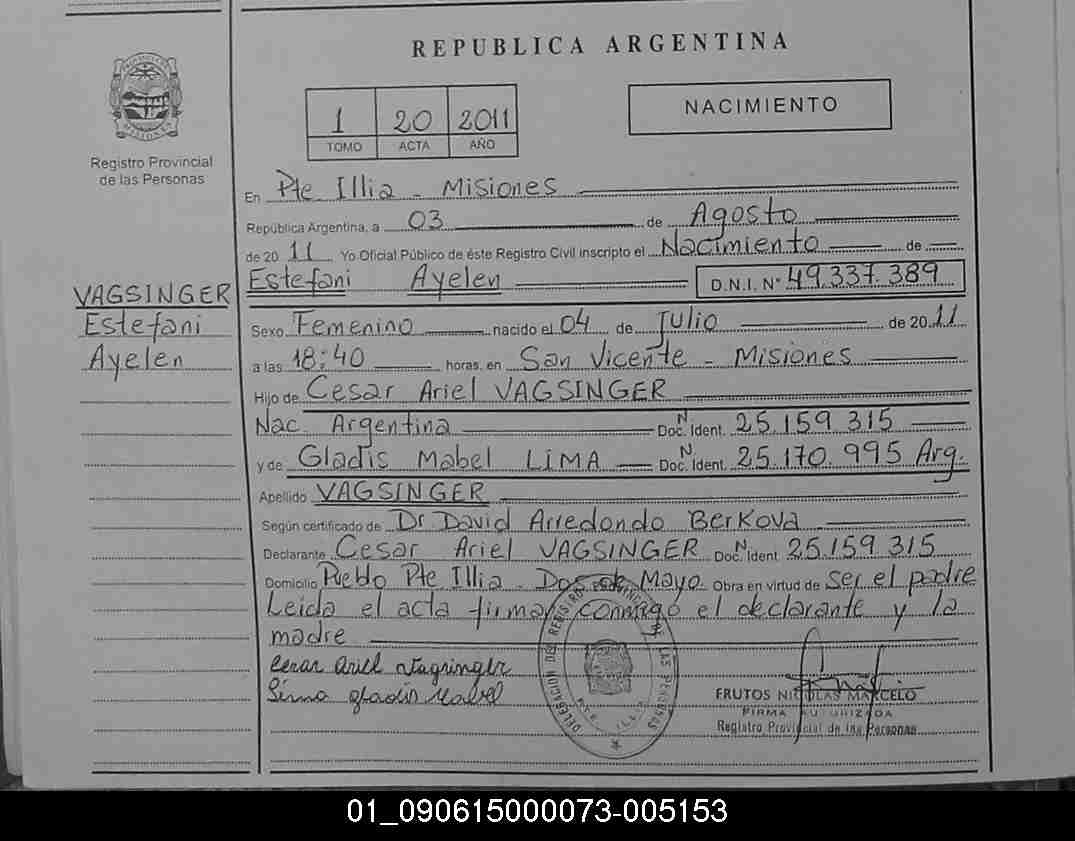 REPUBLICA ARGENTINA
PROVINCIA DE MISIONES
Registro Provincial
de las Personas
1 20 2011
TOMO ACTA AÑO
NACIMIENTO
En Pte Illia - Misiones
República Argentina, a 03 de Agosto
de 20 11 Yo Oficial Público de éste Registro Civil inscripto el Nacimiento de
Estefani Ayelen D.N.I. N° 49.337.389
VAGSINGER
Estefani
Ayelen
Sexo Femenino nacido el 04 de Julio de 20 11
a las 18:40 horas, en San Vicente - Misiones
Hijo de Cesar Ariel VAGSINGER
Nac. Argentina Doc. Ident. N. 25.159.315
y de Gladis Mabel LIMA Doc. Ident. N. 25.170.995 Arg.
Apellido VAGSINGER
Según certificado de Dr David Arredondo Berkova
Declarante Cesar Ariel VAGSINGER Doc. Ident N. 25.159.315
Domicilio Pueblo Pte Illia - Dos de Mayo Obra en virtud de ser el padre
Leida el acta firman conmigo el declarante y la
madre
Cesar Ariel Vagsinger
Lima Gladis Mabel
DELEGACION DEL REGISTRO PROVINCIAL DE LAS PERSONAS
FRUTOS NICOLAS MARCELO
FIRMA AUTORIZADA
Registro Provincial de las Personas
01_090615000073-005153